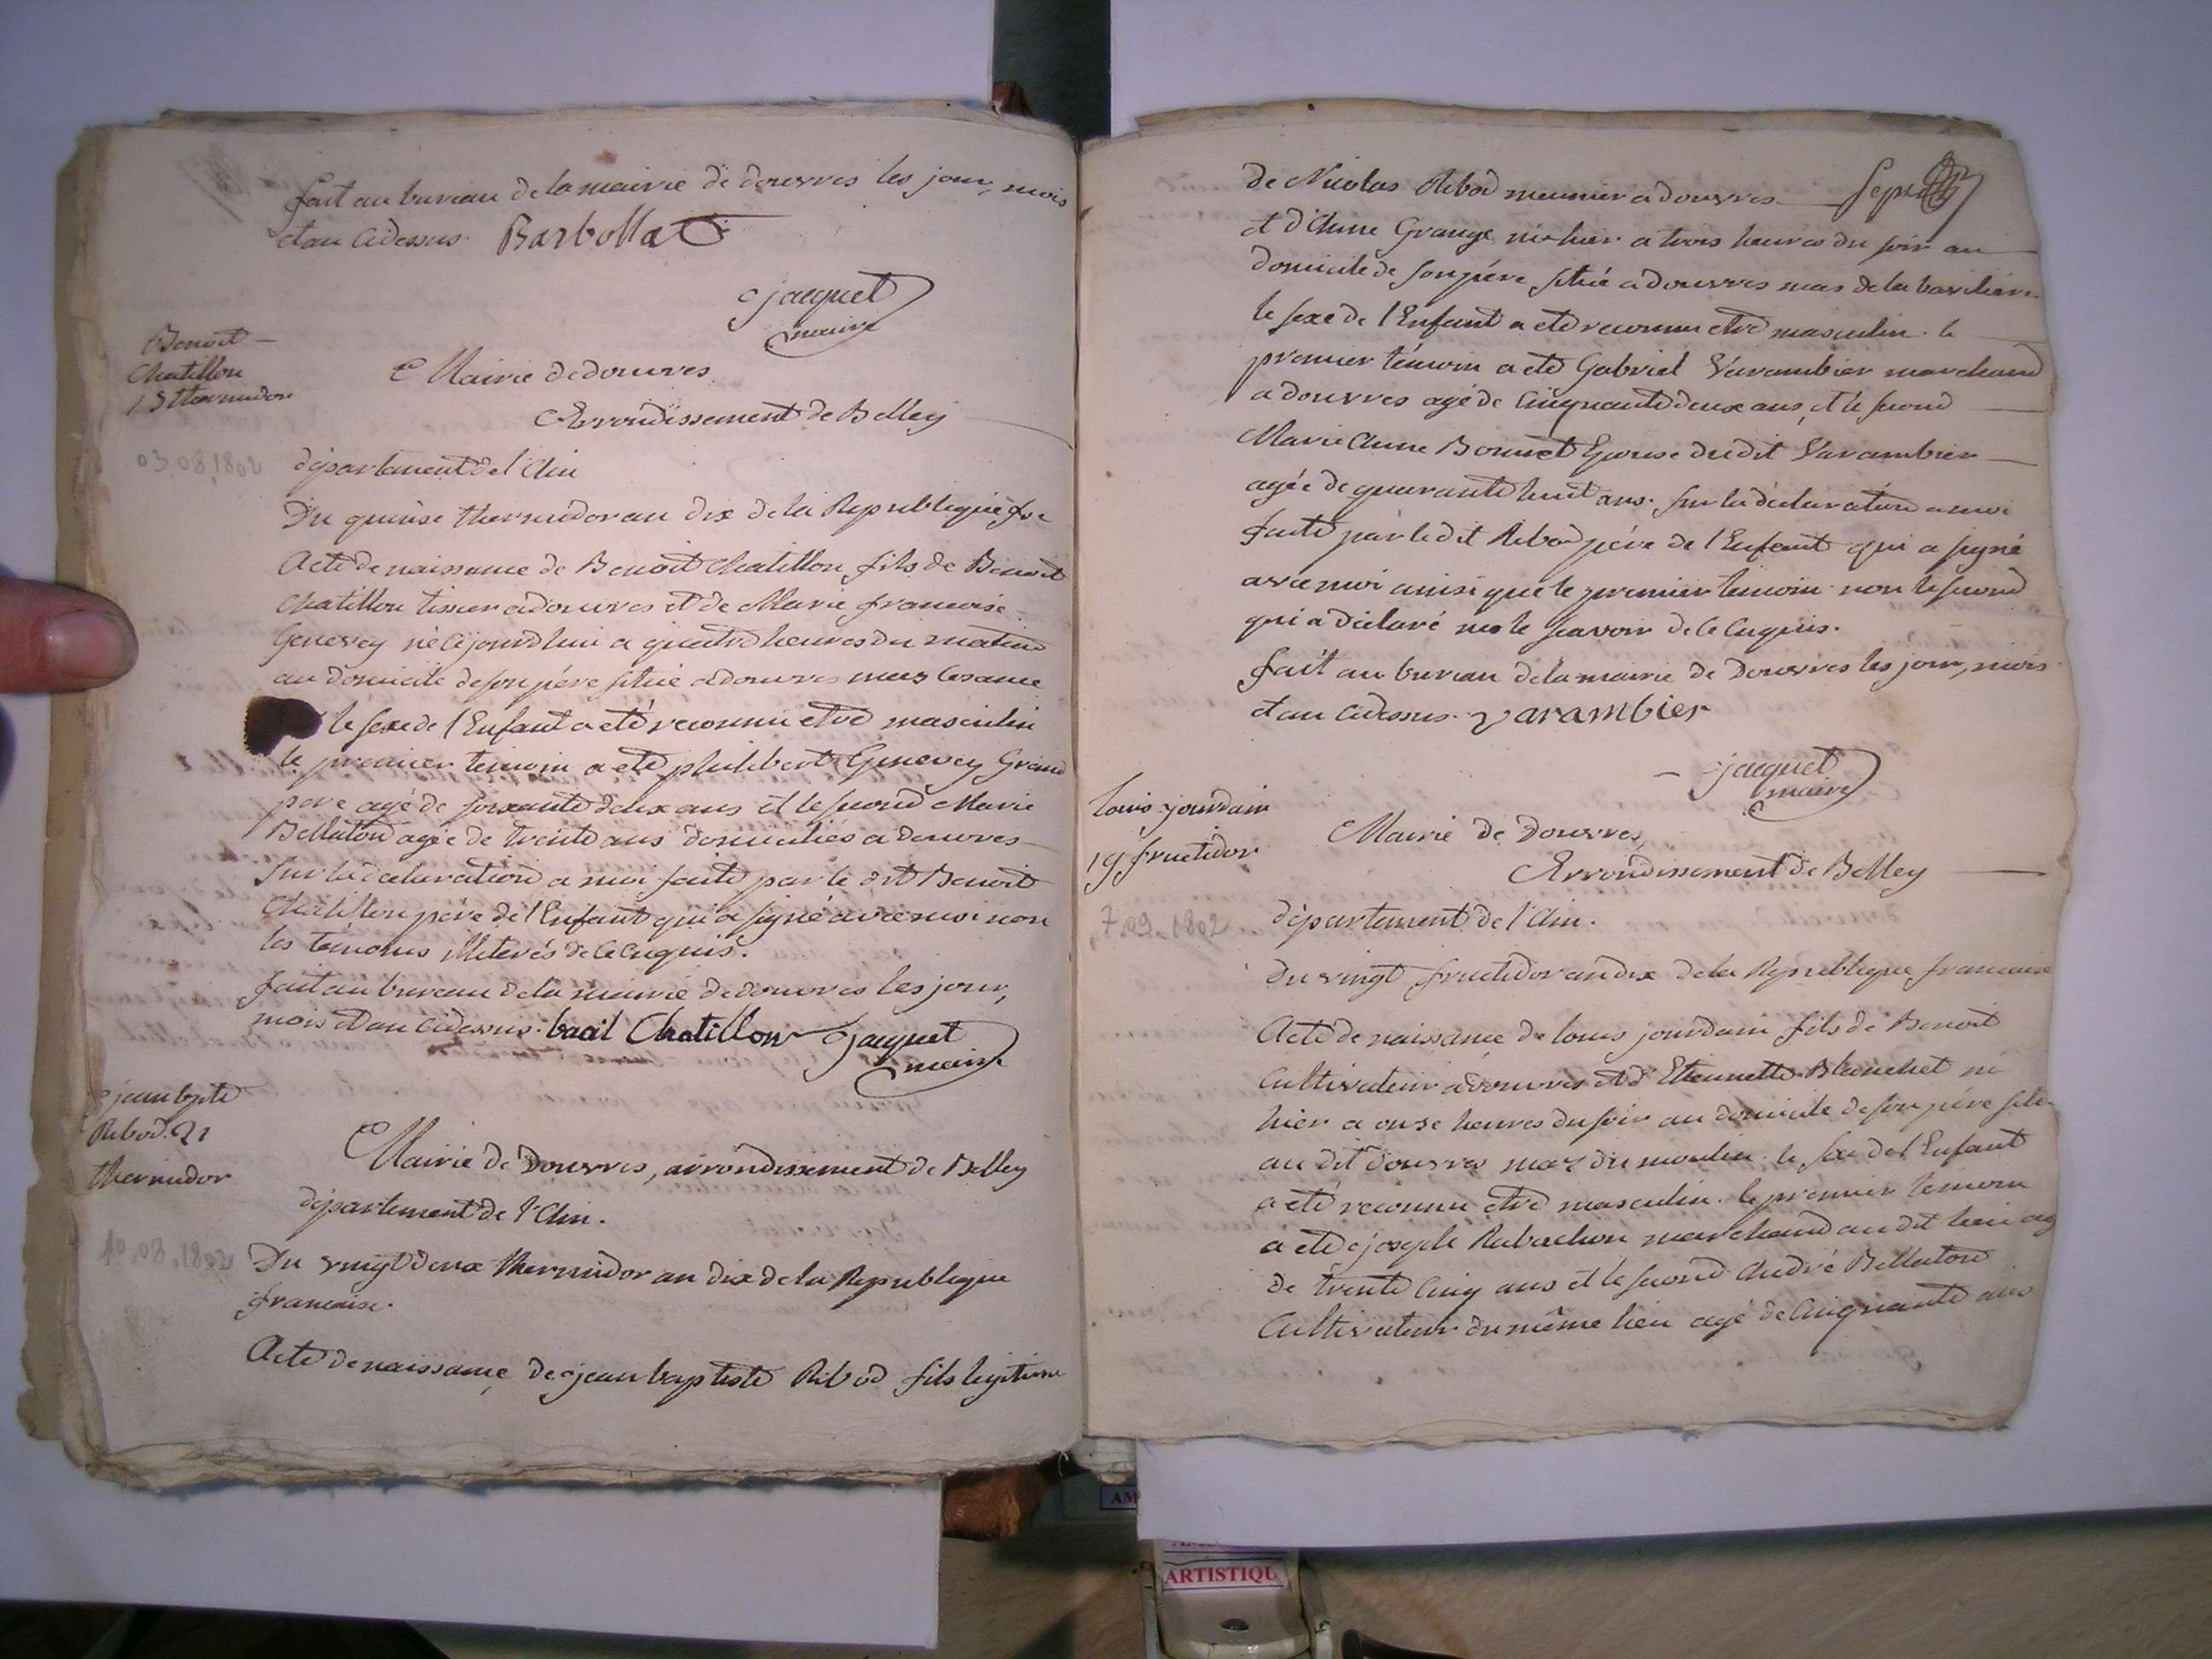 fait au bureau de la mairie de douvres les jour, mois
et an cidessus. Barbollat
jacquet
maire
Benoit
Chatillon
15 thermidor
Mairie de douvres
Arrondissement de Belley
03.08.1802
département de l'Ain
Du quinse thermidor an dix de la Republique
Acte de naissance de Benoit Chatillon fils de Benoit
Chatillon tissier a douvres et de Marie francoise
Genevey né cejourdhui a quatre heures du matin
au domicile de son père situé a douvres mas
le sexe de l'Enfant a eté reconnu etre masculin
le premier temoin a eté philibert Genevey Grand
pere agé de soixante deux ans et le second Marie
Bellaton agée de trente ans domiciliés a douvres
Sur la declaration a moi faite par le dit Benoit
Chatillon père de l'Enfant qui a signé avec moi non
les témoins illiterés de ce enquis.
fait au bureau de la mairie de douvres les jour,
mois et an cidessus. Chatillon jacquet
maire
jean bpte
Ribod. 21
thermidor
Mairie de Douvres, arrondissement de Belley
département de l'Ain.
10.08.1802
Du vingt deux thermidor an dix de la Republique
francaise.
Acte de naissance de jean baptiste Ribod fils legitime
de Nicolas Ribod meunier a douvres
et d'Anne Grange né hier a trois heures du soir au
domicile de son père situé a douvres mas de la
le sexe de l'Enfant a eté reconnu etre masculin. le
premier témoin a eté Gabriel Varambier marchand
a douvres agé de Cinquante deux ans, et le second
Marie Anne Bonnet Epouse dudit Varambier
agée de quarante huit ans. sur la déclaration a moi
faite par le dit Ribod père de l'Enfant qui a signé
avec moi ainsi que le premier temoin non le second
qui a déclaré ne le scavoir de ce enquis.
fait au bureau de la mairie de Douvres les jour, mois
et an cidessus. varambier
jacquet
maire
louis jourdain
19 fructidor
Mairie de Douvres,
Arrondissement de Belley
7.09.1802
département de l'Ain.
Du vingt fructidor an dix de la Republique francaise
Acte de naissance de louis jourdain fils de Benoit
Cultivateur a douvres et d'Etiennette Blanchet né
hier a onse heures du soir au domicile de son père situé
au dit Douvres mas du moulin. le sexe de l'Enfant
a eté reconnu etre masculin. le premier temoin
a eté joseph marchand au dit lieu agé
de trente Cinq ans et le second André Bellaton
Cultivateur du même lieu agé de Cinquante ans
ARTISTIQU